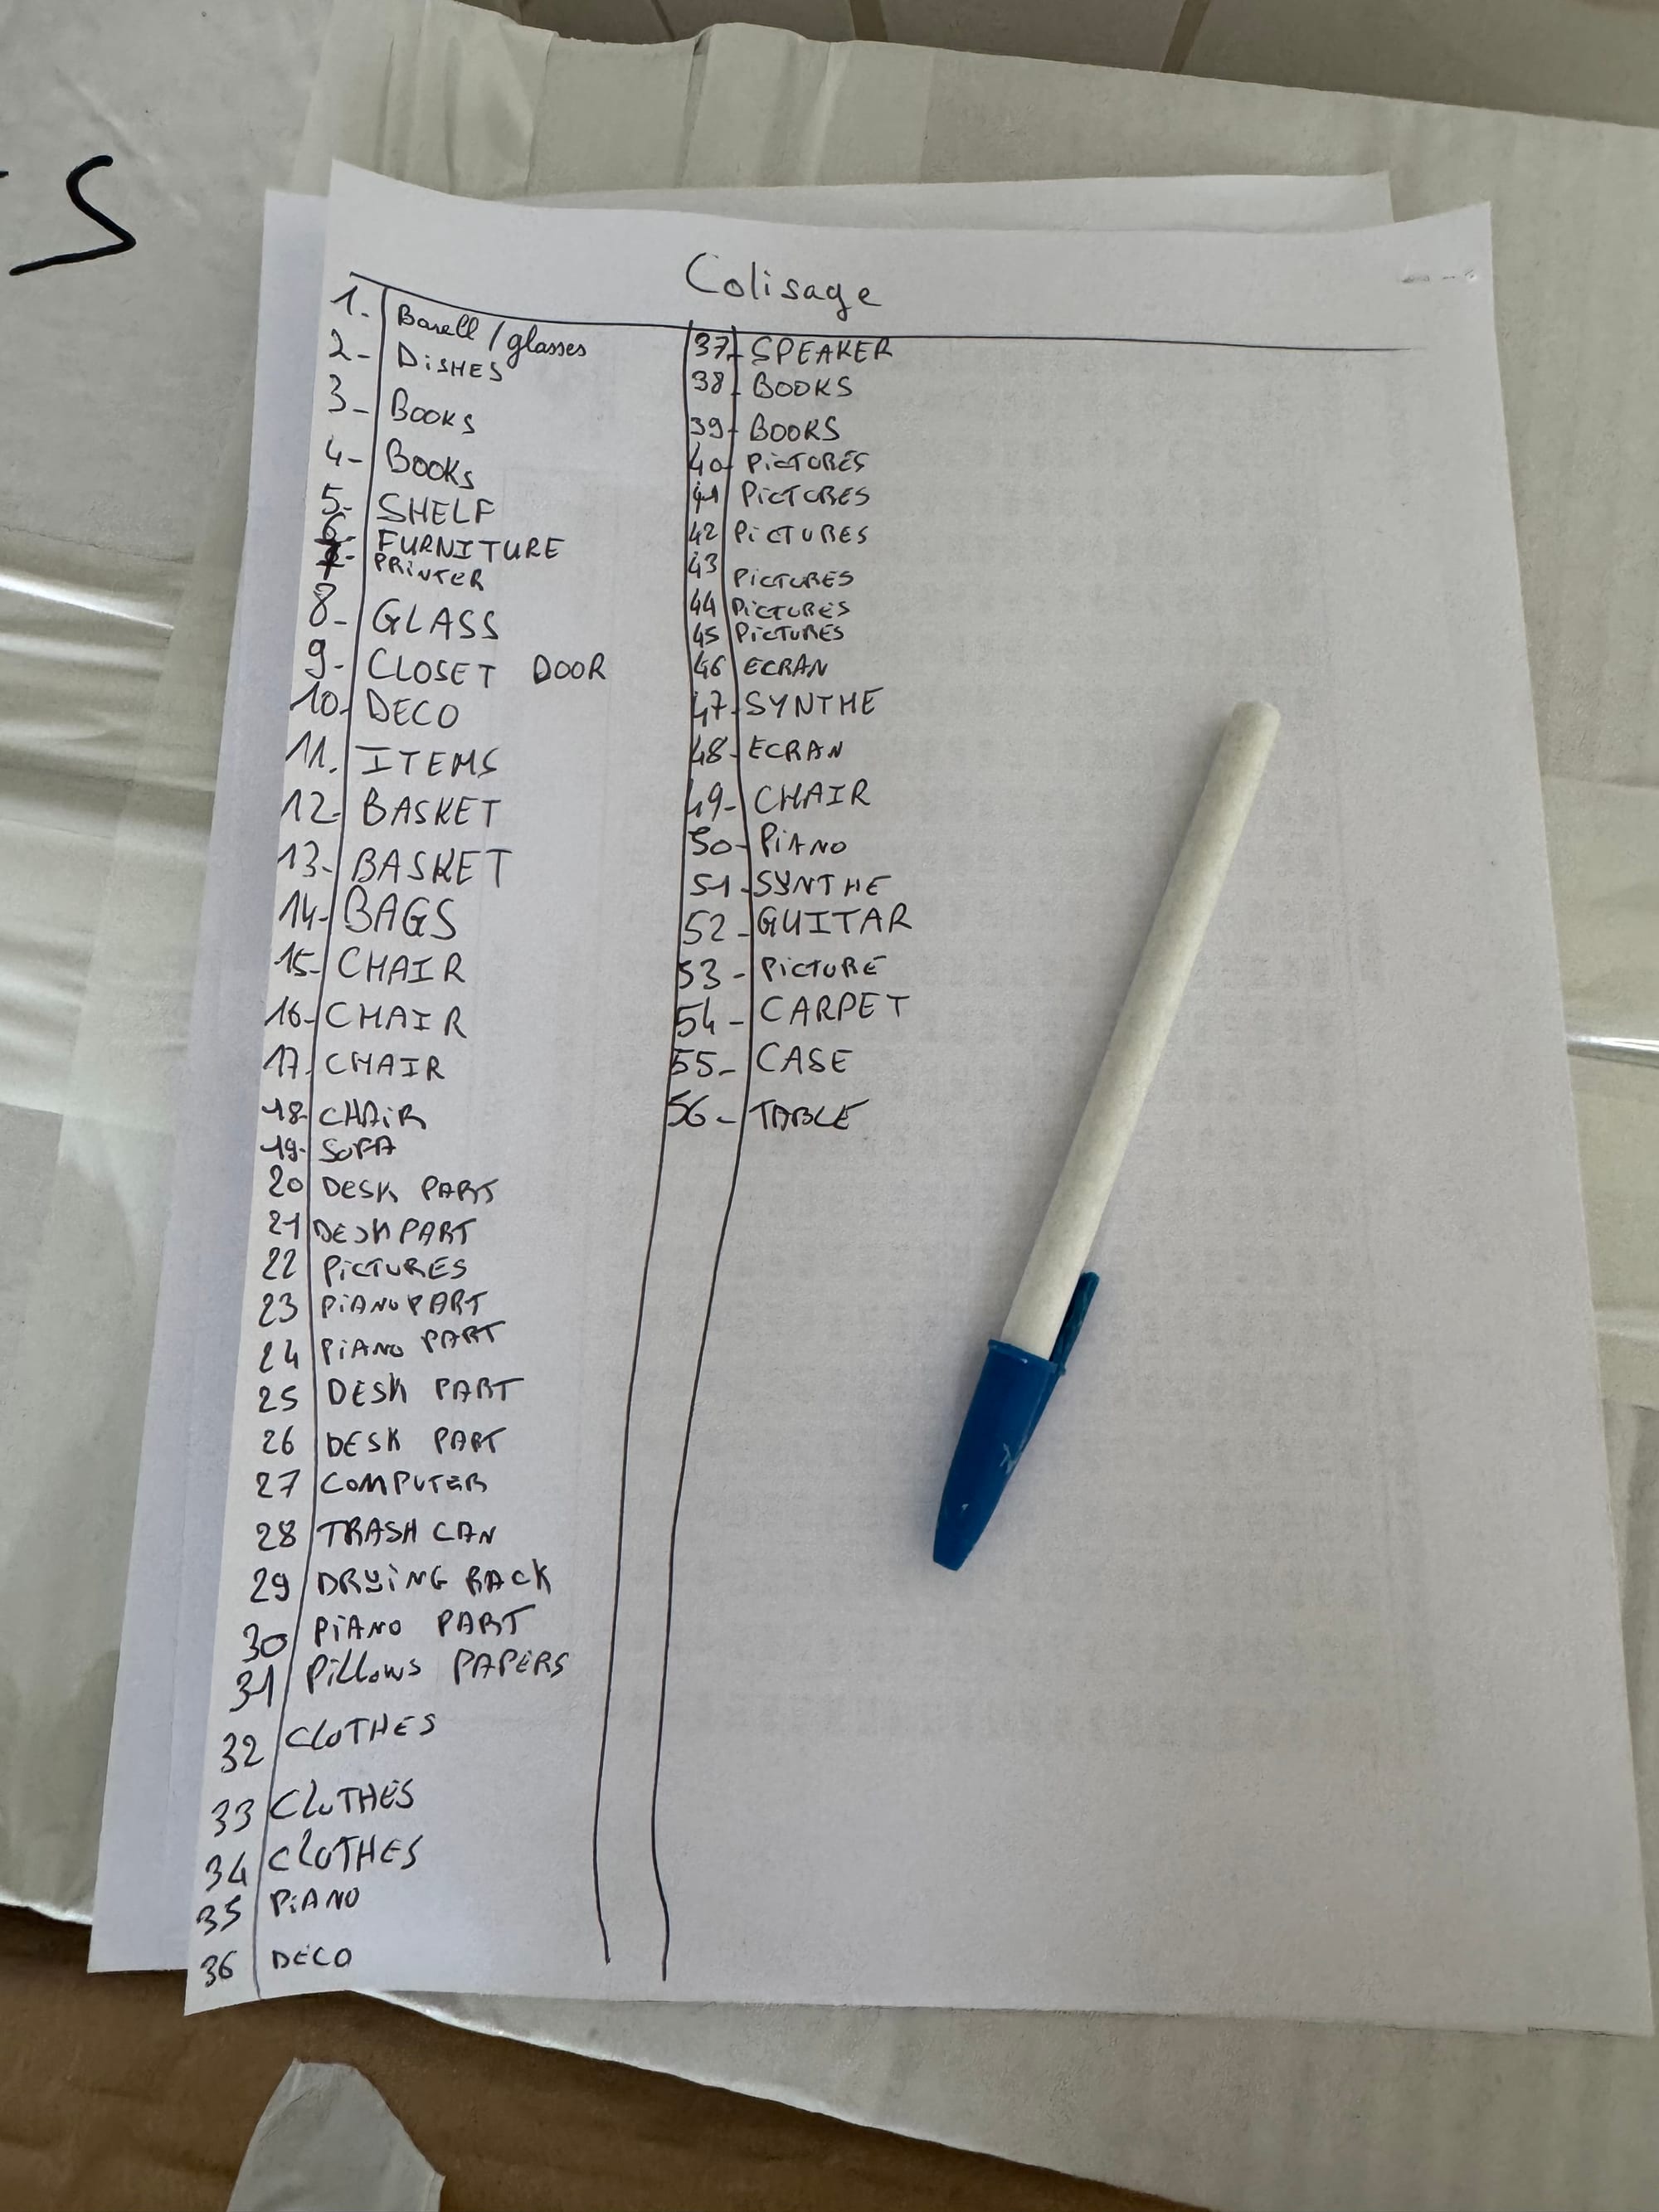 S
Colisage
1. Barell / glasses
2- DiSHES
3- BOOKS
4- BOOKS
5- SHELF
6- FURNITURE
7- PRINTER
8- GLASS
9- CLOSET DOOR
10- DECO
11. ITEMS
12- BASKET
13- BASKET
14- BAGS
15- CHAIR
16- CHAIR
17- CHAIR
18- CHAiR
19- SOFA
20 DESK PART
21 DESK PART
22 PiCTURES
23 PiANO PART
24 PiANO PART
25 DESK PART
26 DESK PART
27 COMPUTER
28 TRASH CAN
29 DRYiNG RACK
30 PiANO PART
31 PiLLOWS PAPERS
32 CLOTHES
33 CLOTHES
34 CLOTHES
35 PiANO
36 DECO
37- SPEAKER
38- BOOKS
39- BOOKS
40- PiCTURES
41 PiCTURES
42 PiCTURES
43 PiCTURES
44 PiCTURES
45 PiCTURES
46 ECRAN
47- SYNTHE
48- ECRAN
49- CHAIR
50- PiANO
51- SYNTHE
52- GUITAR
53- PiCTURE
54- CARPET
55- CASE
56- TABLE